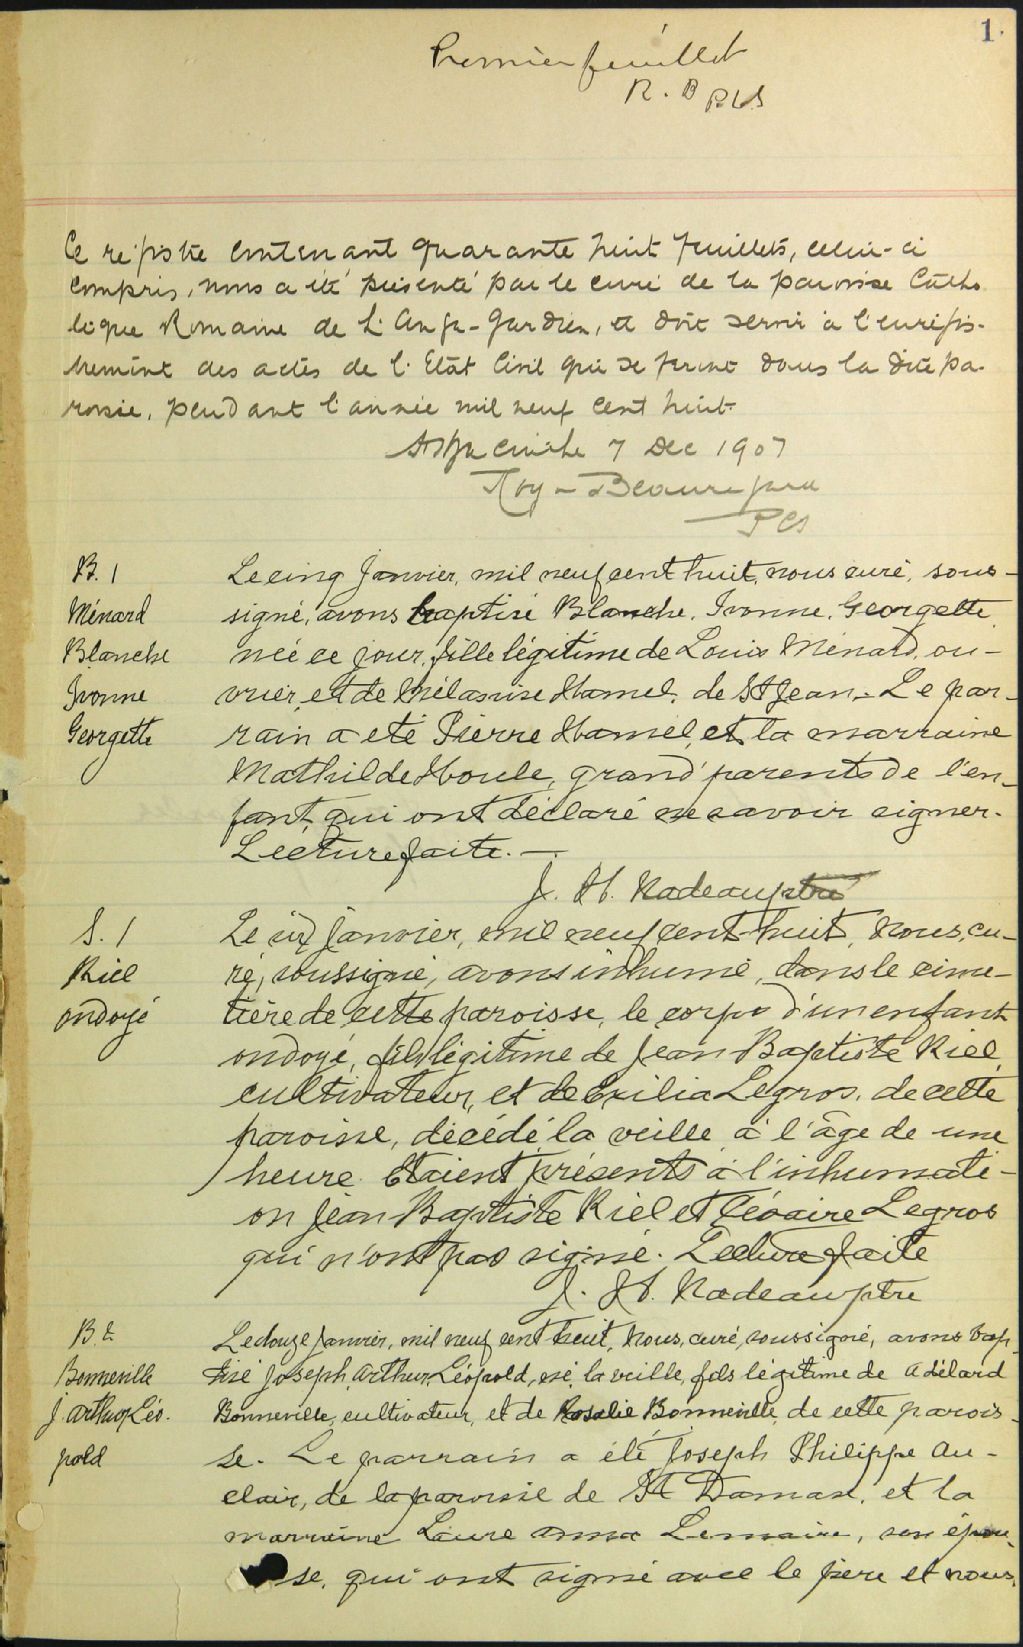 1.
Premier feuillet
R. B PCS
Ce registre contenant quarante huit feuillets, celui-ci
compris, nous a été présenté par le curé de la paroisse Catho
lique Romaine de L'Ange-Gardien, et doit servir à l'enregis-
trement des actes de l'Etat Civil qui se feront dans la dite pa-
roisse, pendant l'année mil neuf cent huit.
St Hyacinthe 7 Dec 1907
Roy-Beauregard
PCS
B. 1
Ménard
Blanche
Ivonne
Georgette
Le cinq Janvier, mil neuf cent huit, nous curé, sous-
signé, avons baptisé Blanche, Ivonne, Georgette
née ce jour, fille légitime de Louis Ménard, ou-
vrier, et de Hamel, de St Jean. Le par-
rain a été Pierre Hamel, et la marraine
Mathilde Houle, grand'parents de l'en-
fant qui ont déclaré ne savoir signer.
Lecture faite. —
J. H. Nadeau ptre
S. 1
Riel
ondoyé
Le six Janvier, mil neuf cent huit, Nous, cu-
ré, soussigné, avons inhumé, dans le cime-
tière de cette paroisse, le corps d'un enfant
ondoyé, fils légitime de Jean Baptiste Riel,
cultivateur, et de Exilia Legros, de cette
paroisse, décédé la veille à l'âge de une
heure. Etaient présents à l'inhumati-
on Jean Baptiste Riel et Legros
qui n'ont pas signé. Lecture faite
J. H. Nadeau ptre
B 2
Bonneville
J. Arthur Léo.
pold
Le douze Janvier, mil neuf cent huit, Nous, curé, soussigné, avons bap-
tisé Joseph, Arthur, Léopold, né, la veille, fils légitime de Adélard
Bonneville, cultivateur, et de Rosalie Bonneville, de cette parois-
se. Le parrain a été Joseph Philippe Au-
clair, de la paroisse de St Damase, et la
marraine Laure Anna Lemaire, son épou-
se, qui ont signé avec le père et nous.